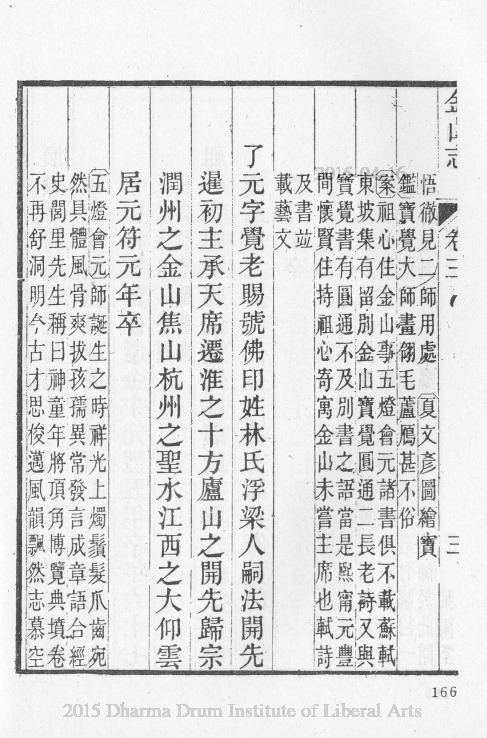 金山志 卷三 三
悟徹見二師用處 夏文彥圖繪寶
鑑寶覺大師畫翎毛蘆鴈甚不俗
案祖心住金山事五燈會元諸書俱不載蘇軾
東坡集有留別金山寶覺圓通二長老詩又與
寶覺書有圓通不及別書之語當是熙甯元豐
間懷賢住持祖心寄寓金山未嘗主席也軾詩
及書並
載藝文
了元字覺老賜號佛印姓林氏浮梁人嗣法開先
暹初主承天席遷淮之十方廬山之開先歸宗
潤州之金山焦山杭州之聖水江西之大仰雲
居元符元年卒
五燈會元師誕生之時祥光上燭鬚髮爪齒宛
然具體風骨爽拔孩孺異常發言成章語合經
史閭里先生稱曰神童年將頂角博覽典墳卷
不再舒洞明今古才思俊邁風韻飄然志慕空
166
2015 Dharma Drum Institute of Liberal Arts